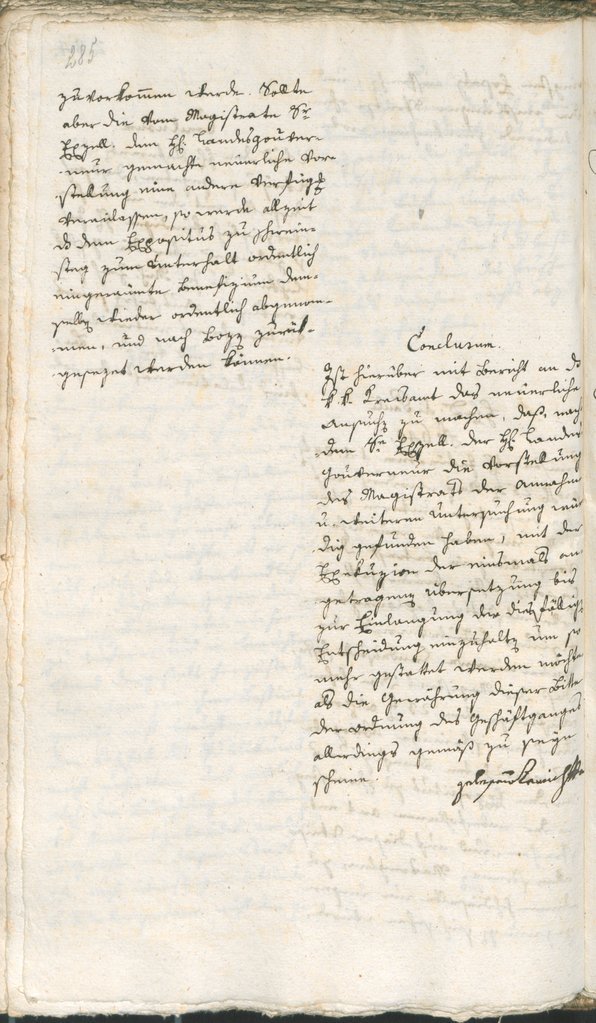 285
zuvorkom̅en werde. Sollte
aber die vom Magistrate Sr
Exzell. dem H: Landesgouver-
neur gemachte neuerliche Vor-
stellung eine andere Verfügg
veranlassen, so werde allzeit
das dem Expositus zu
zum Unterhalt ordentlich
eingeraumte Benefizium dem-
selb wieder ordentlich abgenom-
men, und nach Bozen zurük-
gesezet werden können.
Conclusum.
Ist hierüber mit Bericht an das
k. k. Kreisamt das neuerliche
Ansuchen zu machen, daß, nach-
dem Se Exzell. der H: Landes
Gouverneur die Vorstellung
des Magistrats der Annahm
u. weiteren Untersuchung wür
dig gefunden haben, mit der
Exekuzion der einsmals an-
getragenen Übersetzung bis
zur Einlangung der diesfälligen
Entscheidung einzuhalten um so
mehr gestattet werden möchte
als die Gewährung dieser Bitte
der Ordnung des Geschäftganges
allerdings gemäß zu seyn
scheine.